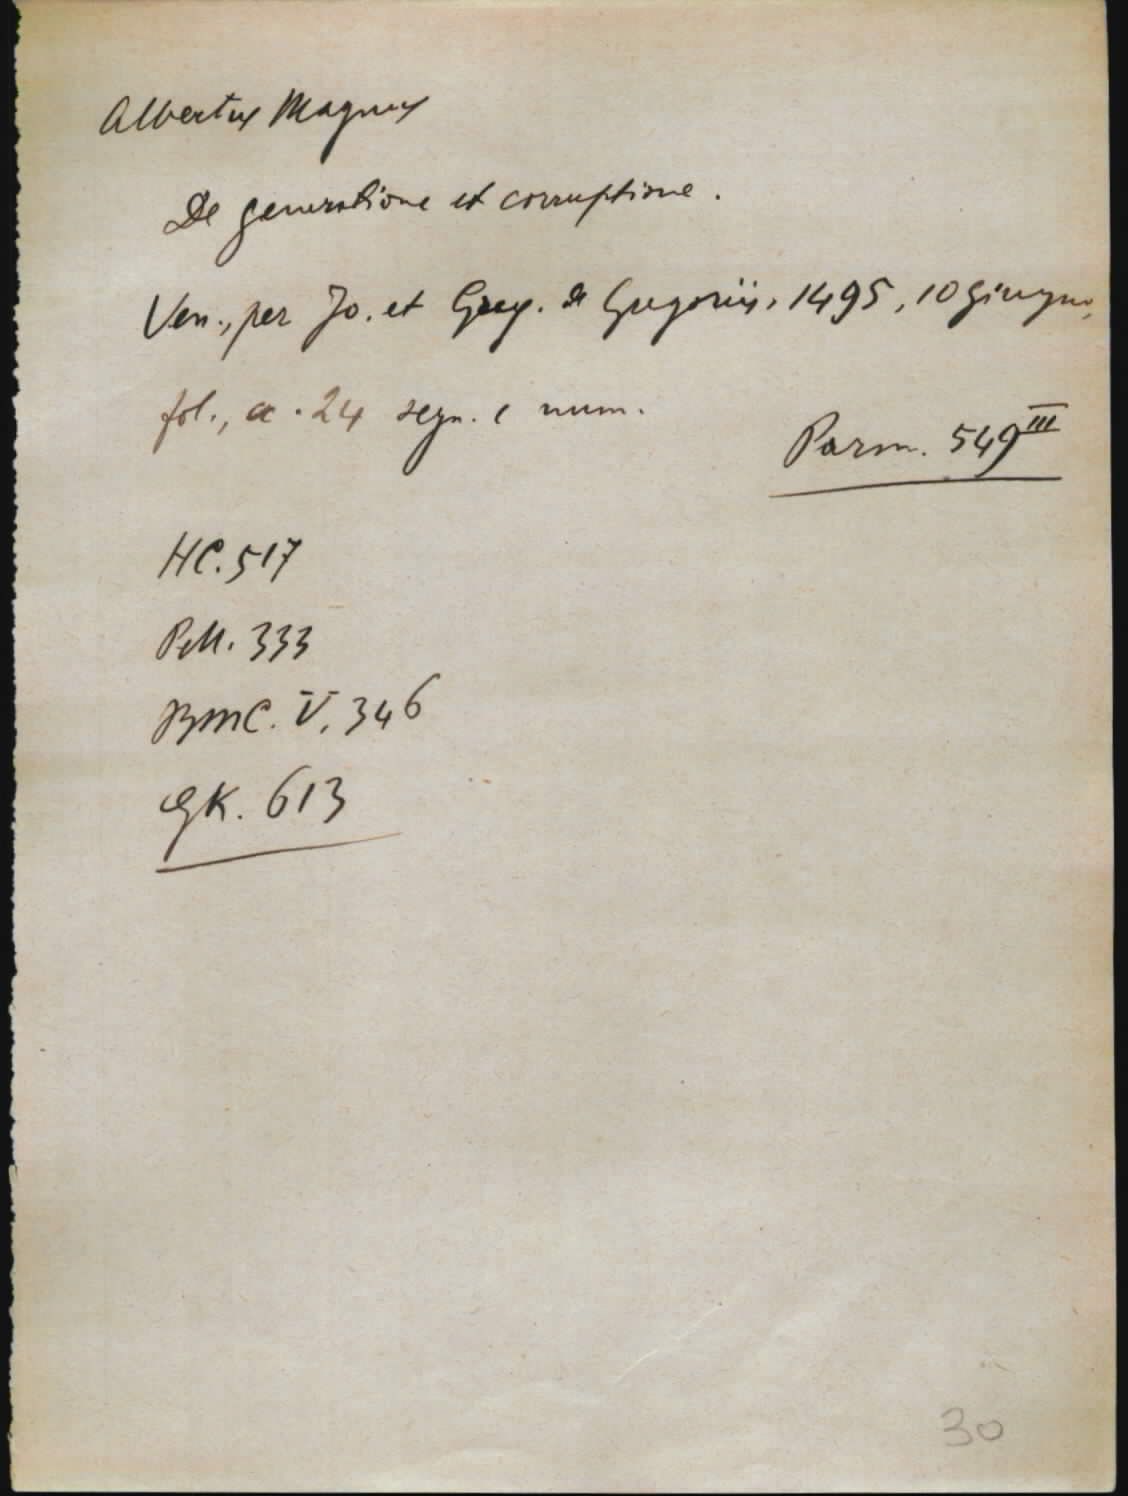 Albertus Magnus
De generatione et corruptione.
Ven., per Jo. et Greg. de Gregoriis, 1495, 10 giugno,
fol., cc. 24 segn. e num.
Parm. 549III
HC. 517
Pell. 333
BMC. V. 346
GK. 613
30